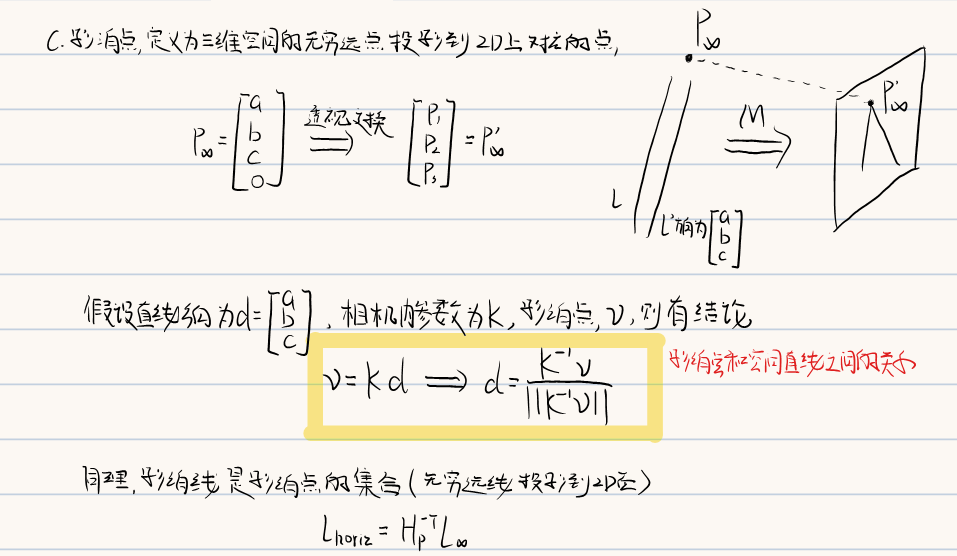 C. 影消点, 定义为三维空间的无穷远点投影到2D上对应的点,
P∞ = [a b c 0] 透视变换 ⟹ [P₁ P₂ P₃] = P'∞
P∞
M ⟹
P'∞
L
L'方向为 [a b c]
假设直线方向为d=[a b c], 相机内参数为K, 影消点, v, 则有结论
v = Kd ⟹ d = K⁻¹v / ||K⁻¹v||
影消点和空间直线之间的关系
同理, 影消线是影消点的集合 (无穷远线投影到2D面)
L_horiz = H_p^-T L∞